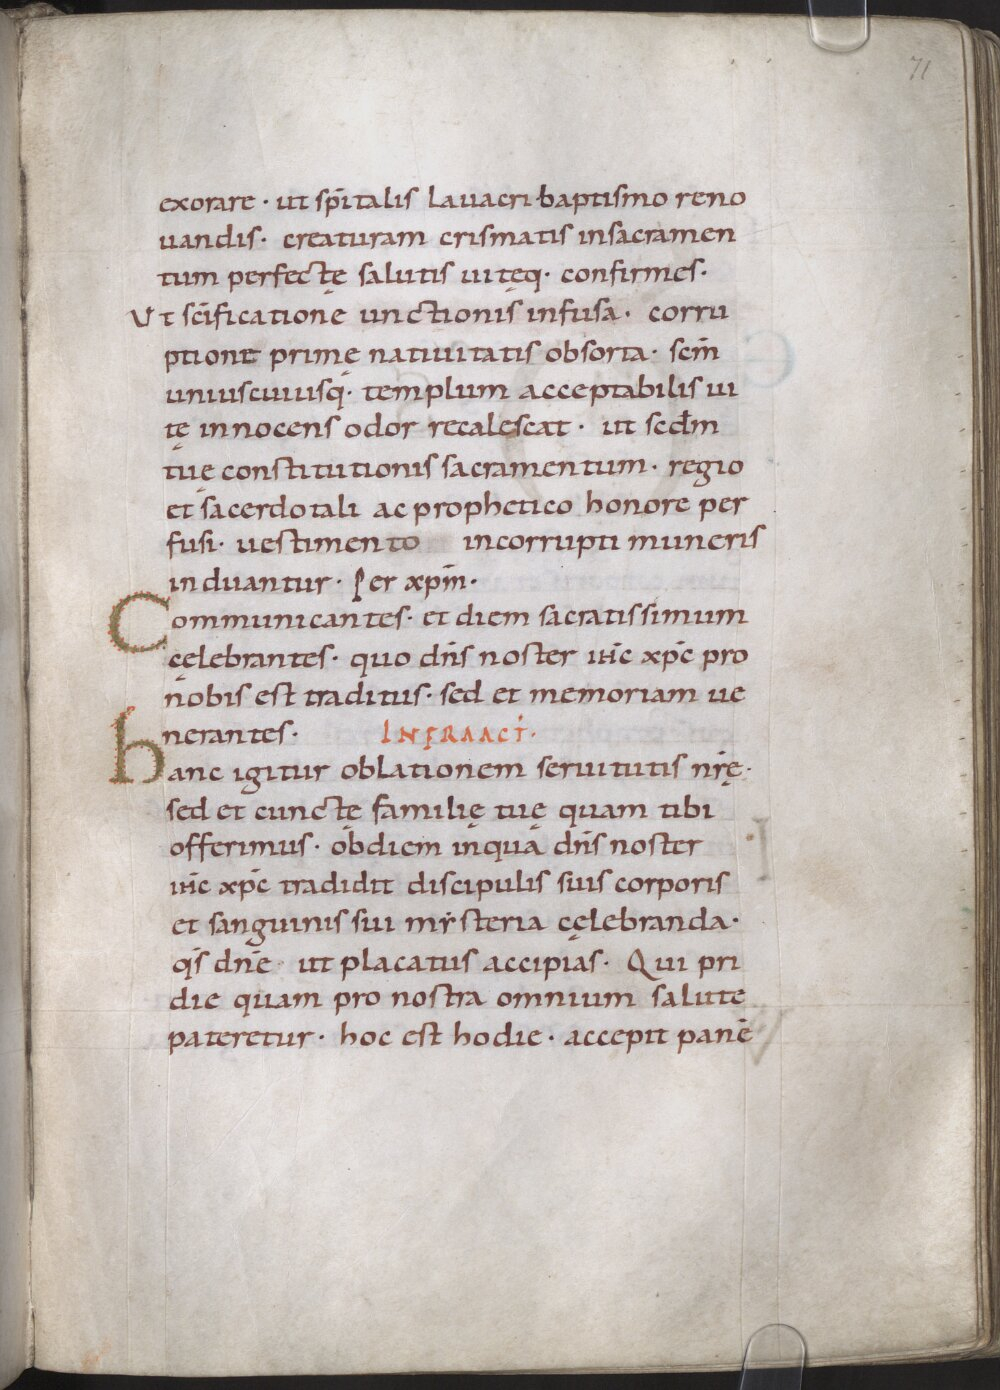 71
exorare · ut sp̄italis lauacri baptismo reno
uandis · creaturam crismatis insacramen
tum perfectę salutis uitęq· confirmes·
Ut sc̄ificatione unctionis infusa · corru
ptione primę natiuitatis obsorta · scm̄
uniuscuiusq̄· templum acceptabilis ui
tę innocens odor recalescat · ut scdm̄
tuę constitutionis sacramentum · regio
et sacerdotali ac prophetico honore per
fusi · uestimento incorrupti muneris
induantur · Per xp̄m ·
Communicantes · et diem sacratissimum
cęlebrantes · quo dn̄s noster ih̄c xp̄c pro
nobis est traditus · sed et memoriam ue
nerantes · INFRA ACT̄·
hanc igitur oblationem seruitutis nr̄ę ·
sed et cunctę familię tuę quam tibi
offerimus · ob diem inqua dn̄s noster
ih̄c xp̄c tradidit discipulis suis corporis
et sanguinis sui mẏsteria cęlebranda ·
qs̄ dn̄e ut placatus accipias · Qui pri
die quam pro nostra omnium salute
pateretur · hoc est hodie · accepit panē